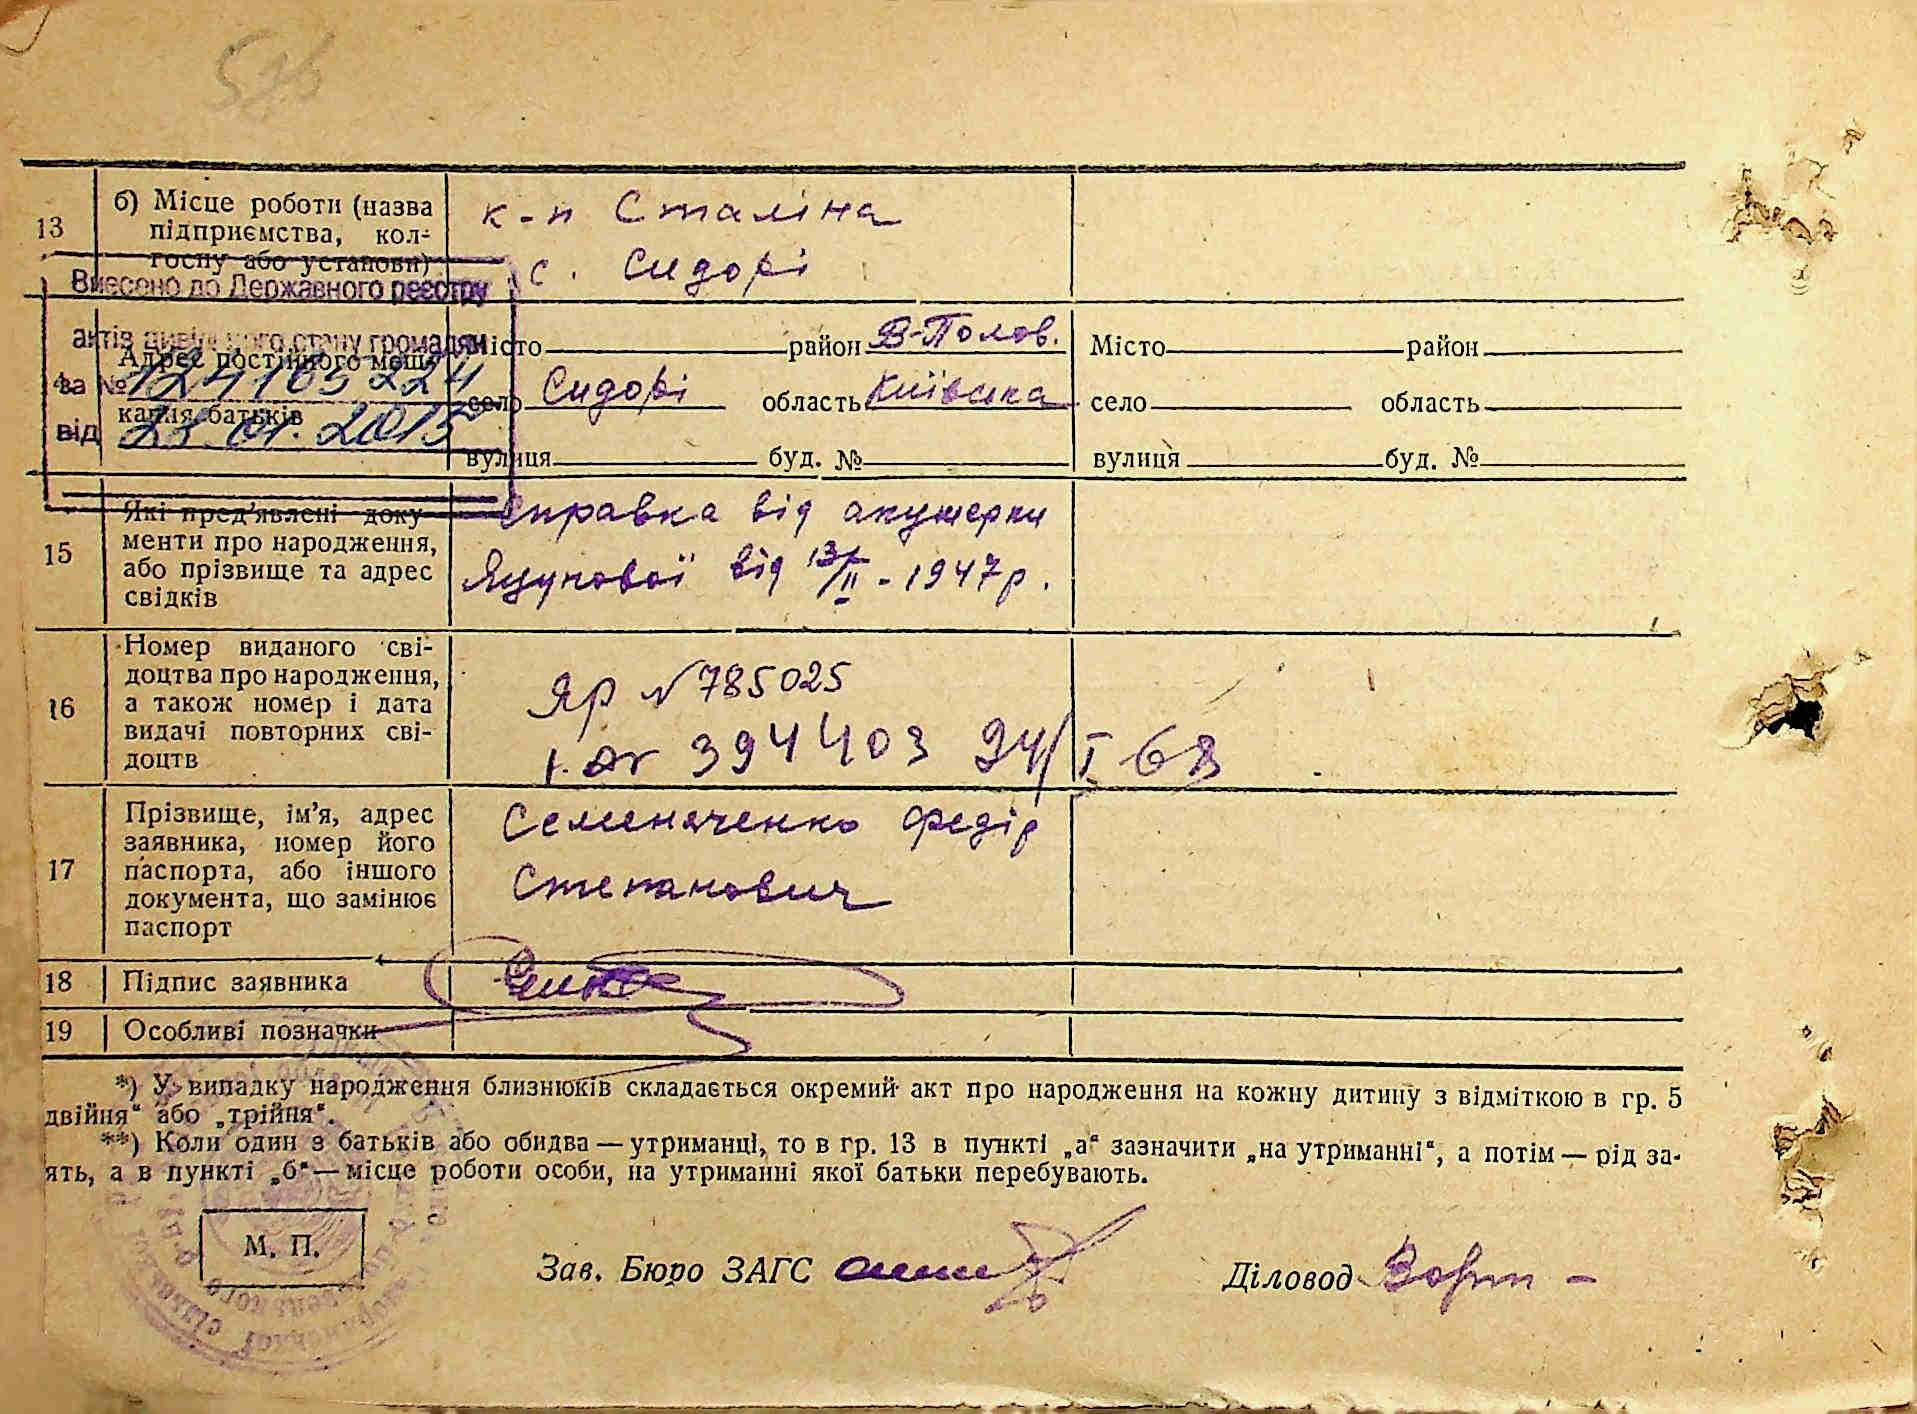 13
б) Місце роботи (назва
підприємства, кол-
госпу або установи)
к-п Сталіна
с. Сидорі
Внесено до Державного реєстру
актів цивільного стану громадян
за №
від
Адрес постійного меш-
кання батьків
Місто район В-Полов.
село Сидорі область Київська
вулиця буд. №
Місто район
село область
вулиця буд. №
15
Які пред'явлені доку-
менти про народження,
або прізвище та адрес
свідків
Справка від акушерки
від 13/II - 1947 р.
16
Номер виданого сві-
доцтва про народження,
а також номер і дата
видачі повторних сві-
доцтв
ЯР № 785025
394403 24/I 68
17
Прізвище, ім'я, адрес
заявника, номер його
паспорта, або іншого
документа, що замінює
паспорт
Семеняченко Федір
Степанович
18 Підпис заявника
19 Особливі позначки
*) У випадку народження близнюків складається окремий акт про народження на кожну дитину з відміткою в гр. 5
двійня" або „трійня".
**) Коли один з батьків або обидва — утриманці, то в гр. 13 в пункті „а" зазначити „на утриманні", а потім — рід за-
ять, а в пункті „б" — місце роботи особи, на утриманні якої батьки перебувають.
М. П.
Зав. Бюро ЗАГС
Діловод